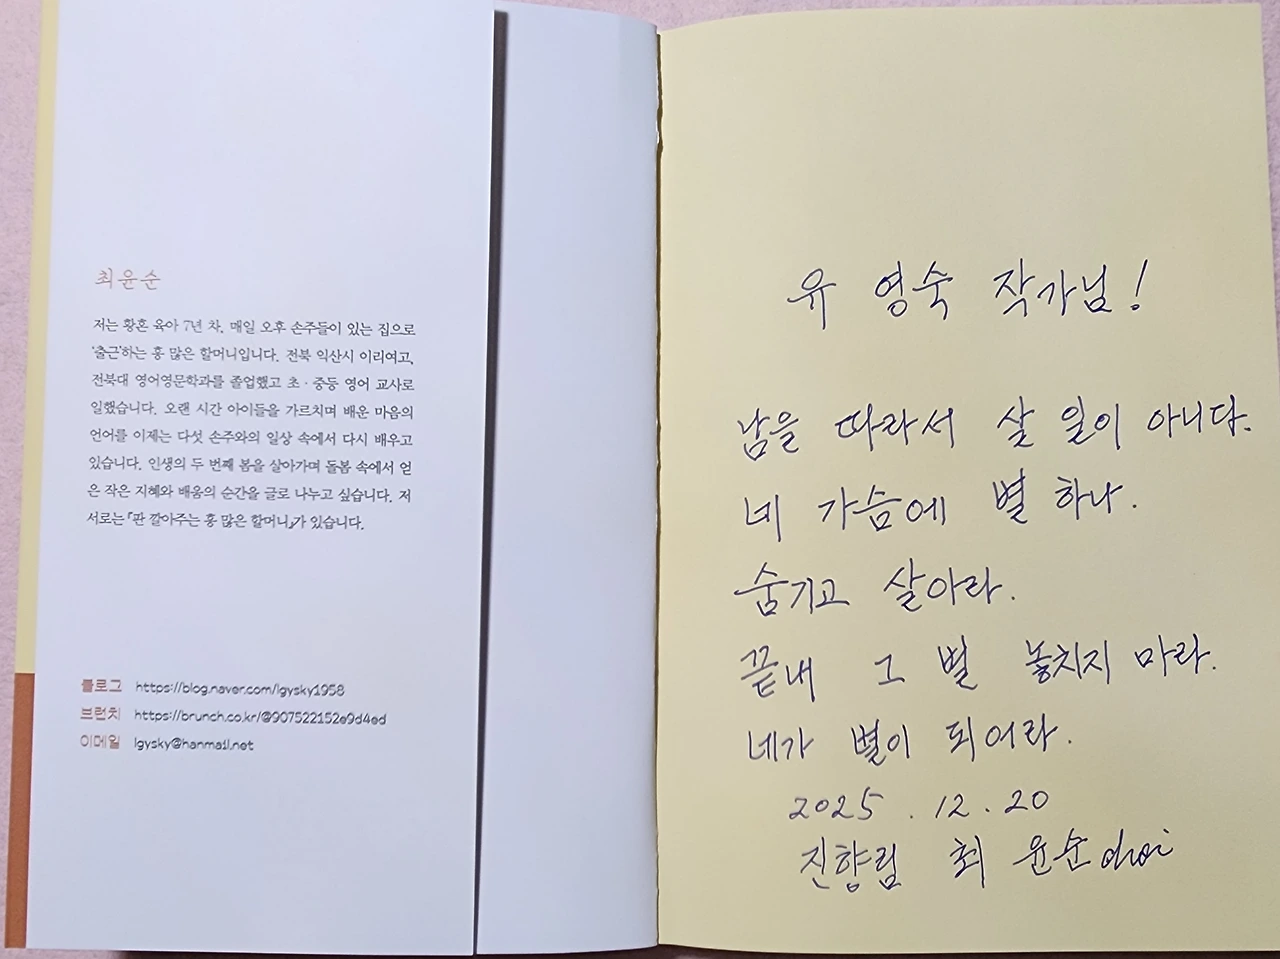 최윤순
저는 황혼 육아 7년 차. 매일 오후 손주들이 있는 집으로
'출근'하는 흥 많은 할머니입니다. 전북 익산시 이리여고,
전북대 영어영문학과를 졸업했고 초·중등 영어 교사로
일했습니다. 오랜 시간 아이들을 가르치며 배운 마음의
언어를 이제는 다섯 손주와의 일상 속에서 다시 배우고
있습니다. 인생의 두 번째 봄을 살아가며 돌봄 속에서 얻
은 작은 지혜와 배움의 순간을 글로 나누고 싶습니다. 저
서로는 『판 깔아주는 흥 많은 할머니』가 있습니다.
블로그 https://blog.naver.com/lgysky1958
브런치 https://brunch.co.kr/@907522152e9d4ed
이메일 lgysky@hanmail.net
유 영숙 작가님!
남을 따라서 살 일이 아니다.
네 가슴에 별 하나.
숨기고 살아라.
끝내 그 별 놓치지 마라.
네가 별이 되어라.
2025. 12. 20
진향림 최 윤순 choi